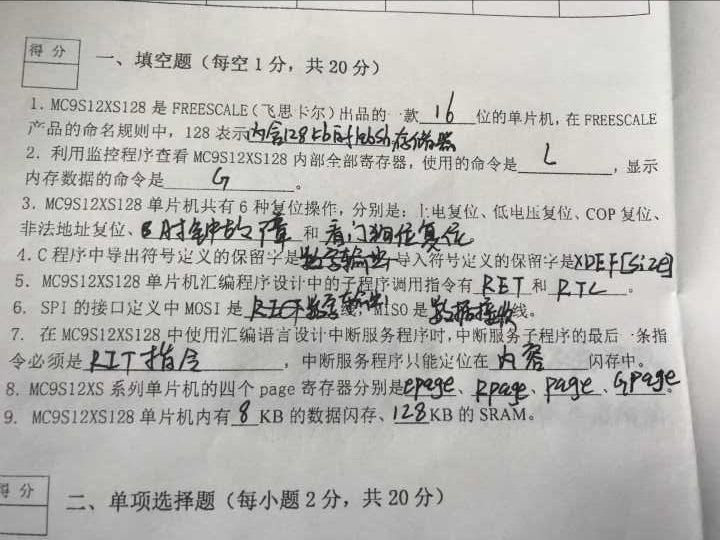 得分
一、填空题（每空1分，共20分）
1. MC9S12XS128 是 FREESCALE（飞思卡尔）出品的一款 16 位的单片机，在 FREESCALE
产品的命名规则中，128 表示内含128kb的flash存储器
2. 利用监控程序查看 MC9S12XS128 内部全部寄存器，使用的命令是 L ，显示
内存数据的命令是 G 。
3. MC9S12XS128 单片机共有 6 种复位操作，分别是：上电复位、低电压复位、COP 复位、
非法地址复位、时钟故障 和 看门狗位复位
4. C 程序中导出符号定义的保留字是数字输出 导入符号定义的保留字是XDEF[size]
5. MC9S12XS128 单片机汇编程序设计中的子程序调用指令有 RET 和 RTL 。
6. SPI 的接口定义中 MOSI 是 数字输出 线，MISO 是 数据接收 线。
7. 在 MC9S12XS128 中使用汇编语言设计中断服务程序时，中断服务子程序的最后一条指
令必须是 RIT指令 ，中断服务程序只能定位在 内容 闪存中。
8. MC9S12XS 系列单片机的四个 page 寄存器分别是epage、Rpage、page、Gpage。
9. MC9S12XS128 单片机内有 8 KB 的数据闪存、128 KB 的 SRAM。
得分
二、单项选择题（每小题2分，共20分）